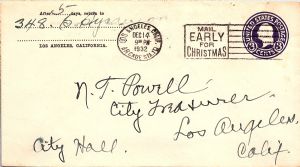 After 5 days, return to
348 S.
LOS ANGELES, CALIFORNIA.
LOS ANGELES, CALIF.
DEC 14
1932
ARCADE STA.
MAIL
EARLY
FOR
CHRISTMAS
UNITED STATES POSTAGE
CENTS
N. T. Powell
City Treasurer
Los Angeles,
City Hall. Calif.